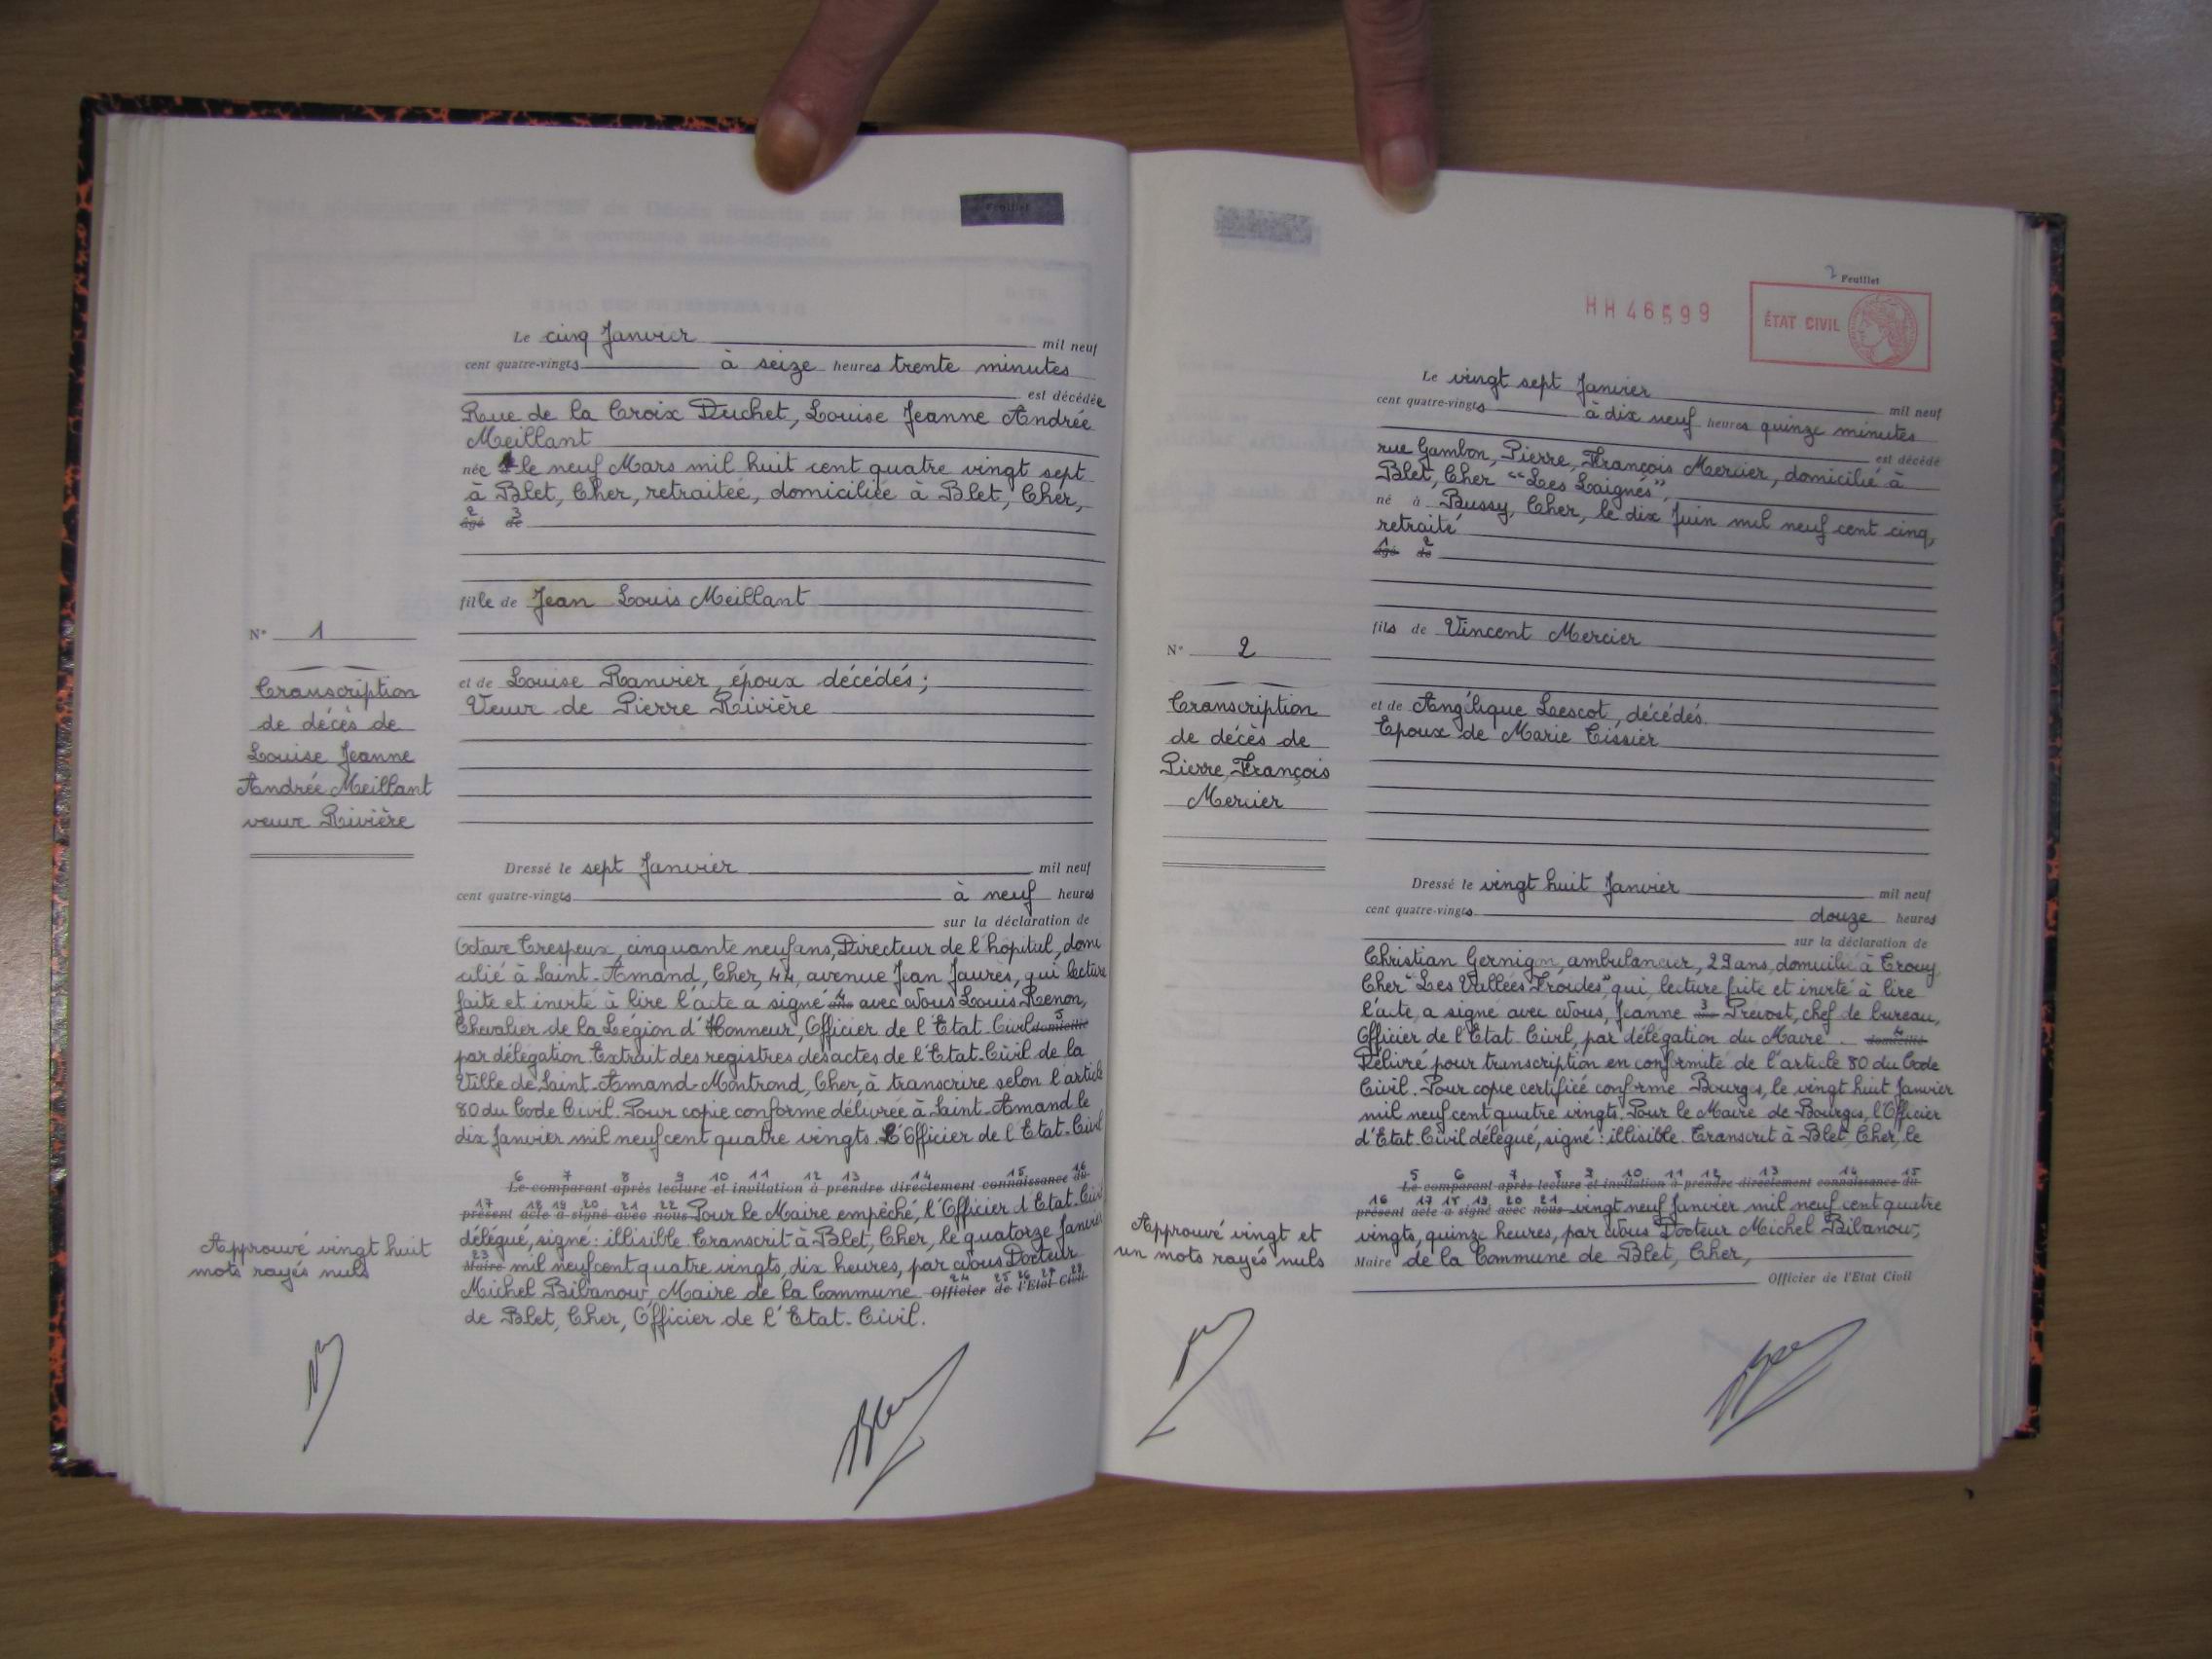 Feuillet
Le cinq Janvier mil neuf
cent quatre-vingts à seize heures trente minutes
est décédée
Rue de la Croix Duchet, Louise Jeanne Andrée
Meillant
née le neuf Mars mil huit cent quatre vingt sept
à Blet, Cher, retraitée, domiciliée à Blet, Cher,
2 3
âgé de
fille de Jean Louis Meillant
N° 1
et de Louise Ranvier, époux décédés ;
Veuve de Pierre Rivière
Transcription
de décès de
Louise Jeanne
Andrée Meillant
veuve Rivière
Dressé le sept Janvier mil neuf
cent quatre-vingts à neuf heures
sur la déclaration de
Octave Crespeux, cinquante neuf ans, Directeur de l'hôpital, domi
cilié à Saint-Amand, Cher, 44, avenue Jean Jaurès, qui lecture
faite et invité à lire l'acte a signé 4 avec Nous Louis Renon,
Chevalier de la Légion d'Honneur, Officier de l'Etat-Civil domicilié 5
par délégation. Extrait des registres des actes de l'Etat-Civil de la
Ville de Saint-Amand-Montrond, Cher, à transcrire selon l'article
80 du Code Civil. Pour copie conforme délivrée à Saint-Amand le
dix Janvier mil neuf cent quatre vingts. L'Officier de l'Etat-Civil
6 7 8 9 10 11 12 13 14 15 16
Le comparant après lecture et invitation à prendre directement connaissance du
17 18 19 20 21 22
présent acte a signé avec nous Pour le Maire empêché, l'Officier d'Etat-Civil
délégué, signé : illisible. Transcrit à Blet, Cher, le quatorze Janvier
23
Maire mil neuf cent quatre vingts, dix heures, par Nous Docteur
24 25 26 27 28
Michel Bibanow, Maire de la Commune Officier de l'Etat Civil
de Blet, Cher, Officier de l'Etat-Civil.
Approuvé vingt huit
mots rayés nuls
2 Feuillet
HH 46599
ÉTAT CIVIL
Le vingt sept Janvier mil neuf
cent quatre-vingts à dix neuf heures quinze minutes
est décédé
rue Gambon, Pierre, François Mercier, domicilié à
Blet, Cher "Les Laignés",
né à Bussy, Cher, le dix Juin mil neuf cent cinq,
retraité
1 2
âgé de
fils de Vincent Mercier
N° 2
et de Angélique Lescot, décédés.
Epoux de Marie Tissier
Transcription
de décès de
Pierre, François
Mercier
Dressé le vingt huit Janvier mil neuf
cent quatre-vingts douze heures
sur la déclaration de
Christian Gernigon, ambulancier, 29 ans, domicilié à Crouy,
Cher "Les Vallées Froides", qui, lecture faite et invité à lire
l'acte, a signé avec Nous, Jeanne 3 Prévost, chef de bureau,
Officier de l'Etat-Civil, par délégation du Maire. domicilié 4
Délivré pour transcription en conformité de l'article 80 du Code
Civil. Pour copie certifiée conforme. Bourges, le vingt huit Janvier
mil neuf cent quatre vingts. Pour le Maire de Bourges, l'Officier
d'Etat-Civil délégué, signé : illisible. Transcrit à Blet, Cher, le
5 6 7 8 9 10 11 12 13 14 15
Le comparant après lecture et invitation à prendre directement connaissance du
16 17 18 19 20 21
présent acte a signé avec nous vingt neuf Janvier mil neuf cent quatre
vingts, quinze heures, par Nous Docteur Michel Bibanow,
Maire de la Commune de Blet, Cher,
Officier de l'Etat Civil
Approuvé vingt et
un mots rayés nuls